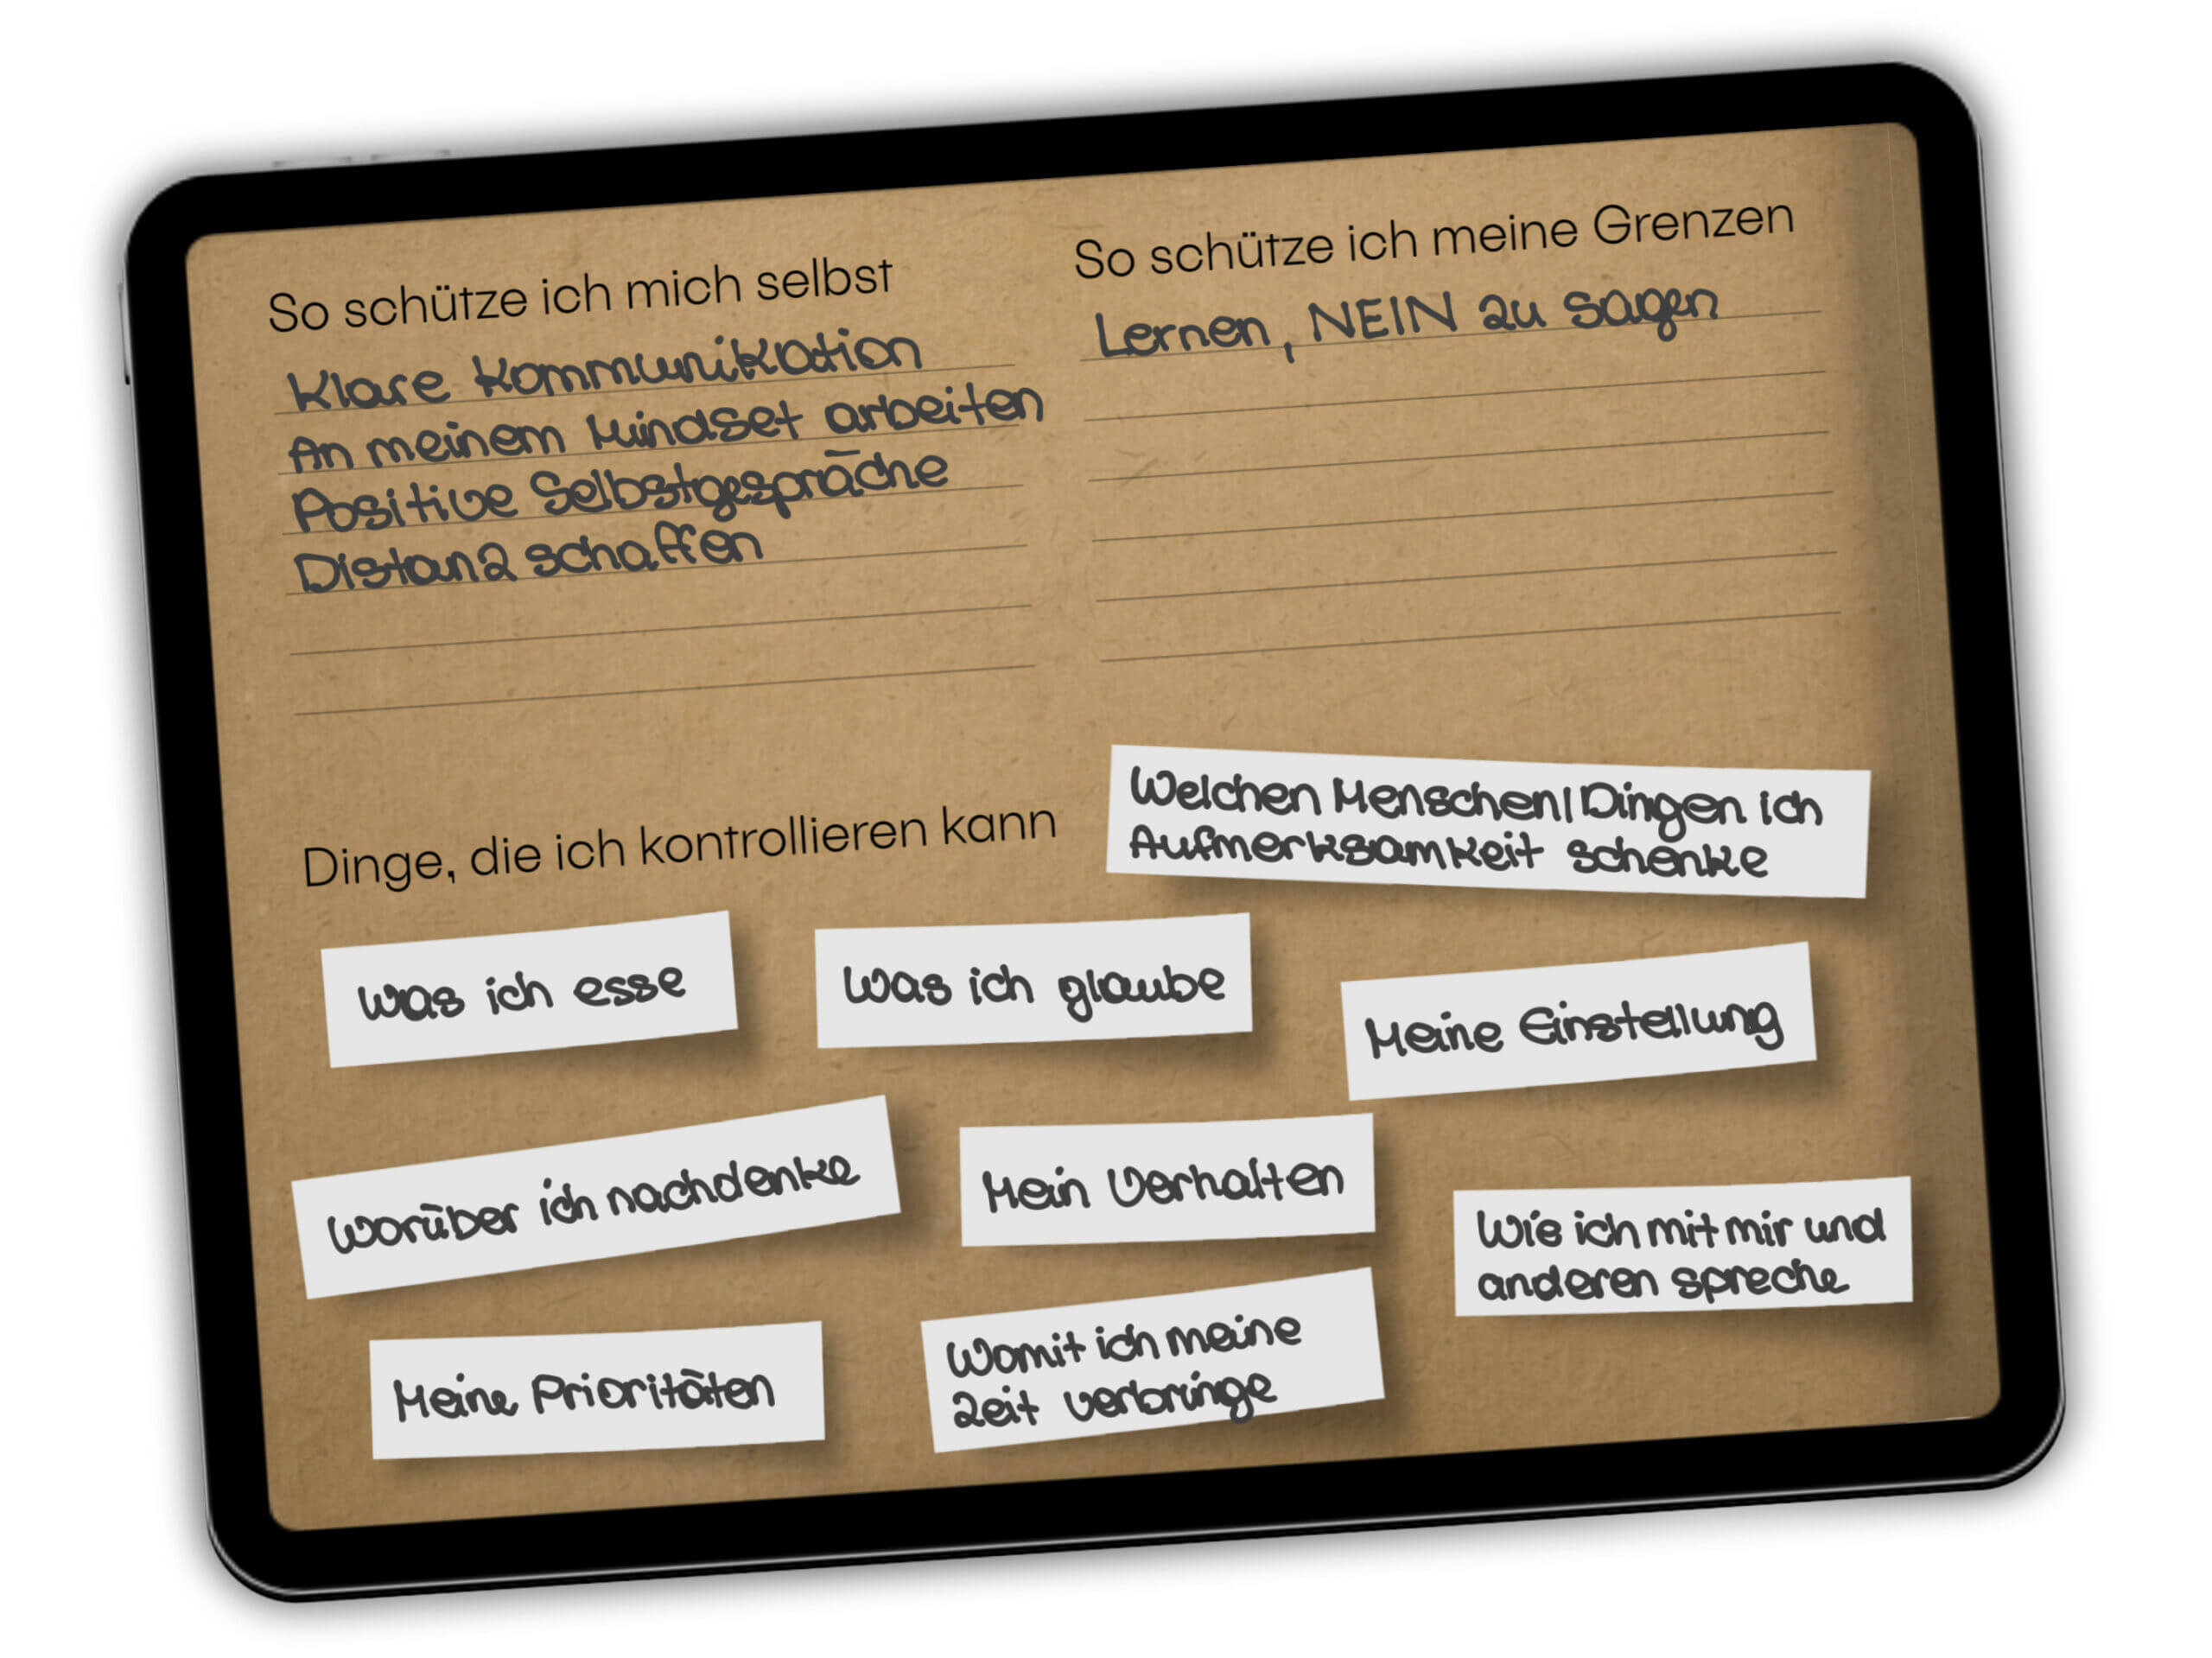 So schütze ich mich selbst
Klare Kommunikation
An meinem Mindset arbeiten
Positive Selbstgespräche
Distanz schaffen
So schütze ich meine Grenzen
Lernen, NEIN zu sagen
Dinge, die ich kontrollieren kann
Welchen Menschen/Dingen ich
Aufmerksamkeit schenke
Was ich esse
Was ich glaube
Meine Einstellung
Worüber ich nachdenke
Mein Verhalten
Wie ich mit mir und
anderen spreche
Meine Prioritäten
Womit ich meine
Zeit verbringe